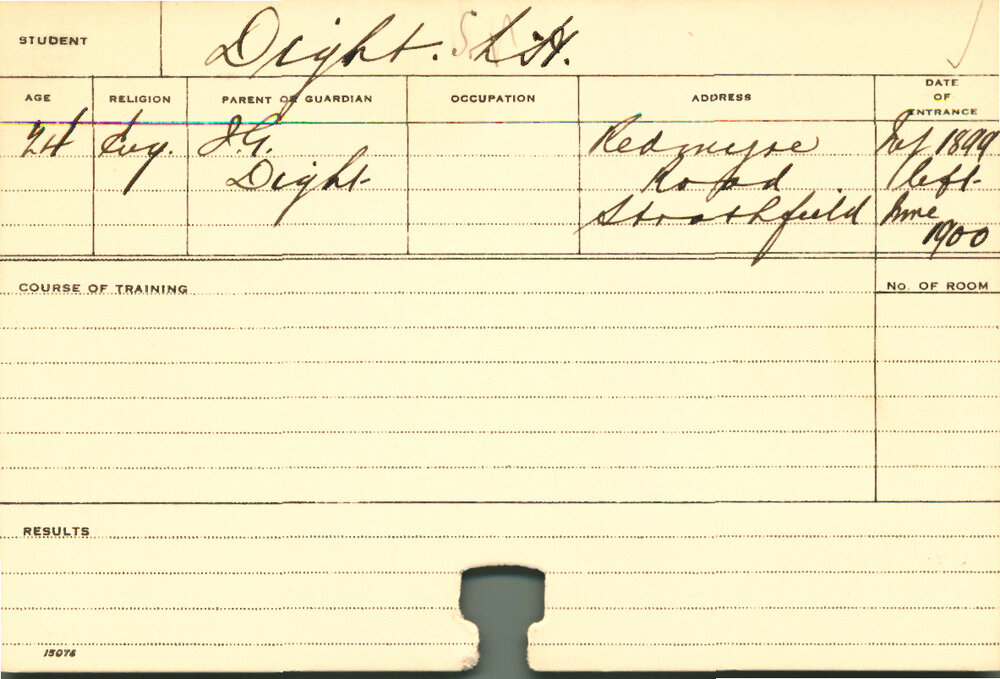 STUDENT Dight. L.H.
AGE RELIGION PARENT OR GUARDIAN OCCUPATION ADDRESS DATE OF ENTRANCE
24 Eng. J.G. Redmyre 1899
Dight Road left
Strathfield June
1900
COURSE OF TRAINING No. OF ROOM
RESULTS
15076